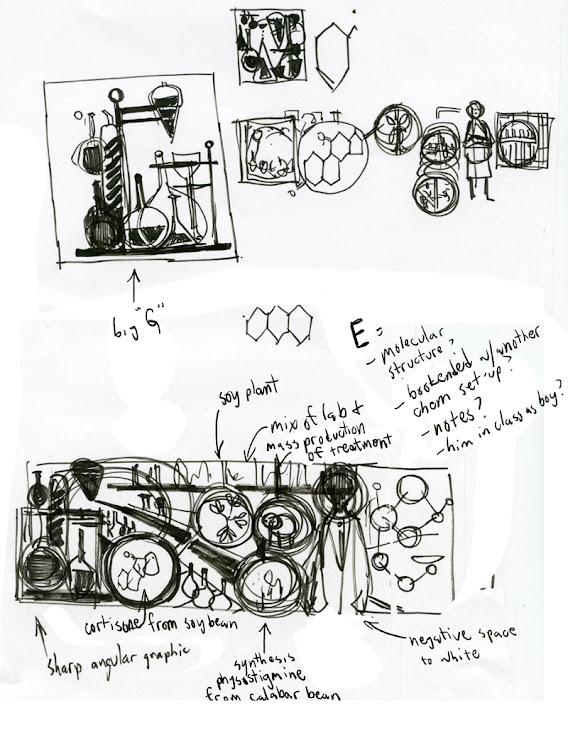 big "G"
E:
- molecular
structure?
- bookended w/another
chem set-up?
- notes?
- him in class as boy?
soy plant
mix of lab &
mass production
of treatment
cortisone from soybean
sharp angular graphic
synthesis
physostigmine
from calabar bean
negative space
to white